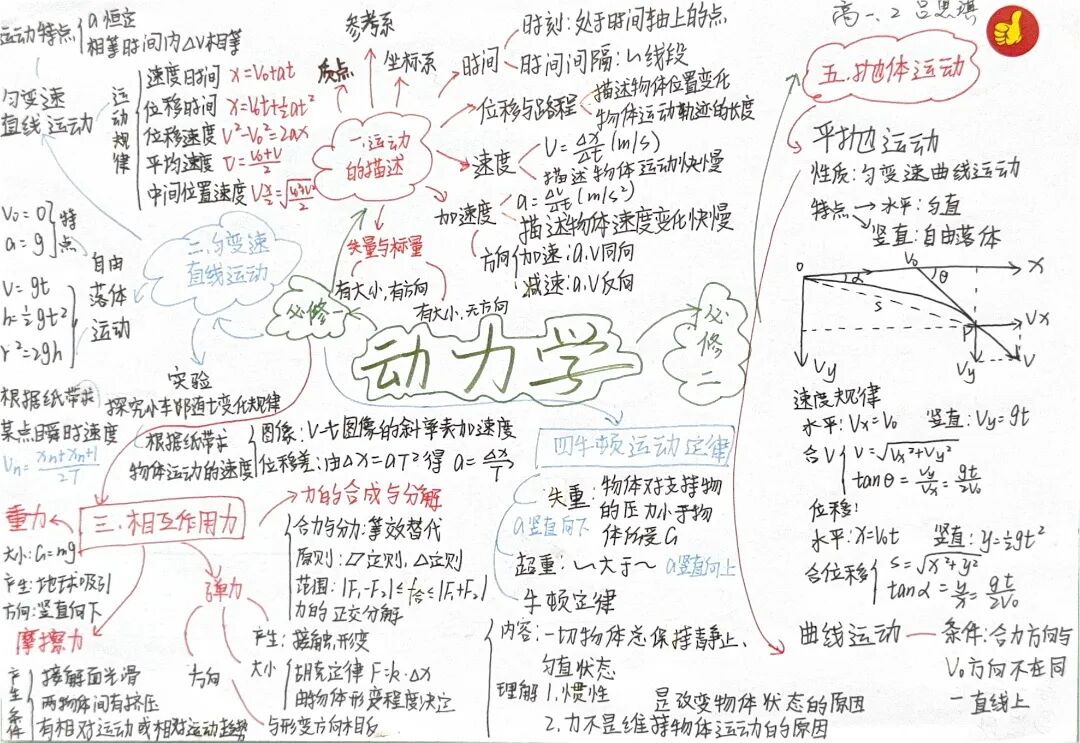 高一.2 吕思淇
动力学
必修一
必修二
一.运动的描述
参考系
坐标系
质点
时间
时刻:处于时间轴上的点
时间间隔:~线段
位移与路程
描述物体位置变化
物体运动轨迹的长度
速度
V=Δx/Δt (m/s)
描述物体运动快慢
加速度
a=Δv/Δt (m/s²)
描述物体速度变化快慢
方向
加速:a,V同向
减速:a,V反向
矢量与标量
有大小,有方向
有大小,无方向
二.匀变速直线运动
匀变速直线运动
运动特点
a恒定
相等时间内ΔV相等
运动规律
速度时间 x=V₀+at
位移时间 x=V₀t+½at²
位移速度 V²-V₀²=2ax
平均速度 v=(v₀+v)/2
中间位置速度
自由落体运动
V₀=0
a=g
特点
V=gt
h=½gt²
v²=2gh
实验
探究小车 随t变化规律
根据纸带求某点瞬时速度
Vn=(xn+xn+1)/2T
根据纸带求物体运动的速度
图像:V-t图像的斜率表加速度
位移差:由Δx=aT²得 a=Δx/T²
三.相互作用力
重力
大小:G=mg
产生:地球吸引
方向:竖直向下
摩擦力
产生条件
接触面光滑
两物体间有挤压
有相对运动或相对运动趋势
弹力
产生:接触,形变
大小
胡克定律 F=k·Δx
由物体形变程度决定
方向
与形变方向相反
力的合成与分解
合力与分力:等效替代
原则:▱定则,△定则
范围:|F₁-F₂|≤F合≤|F₁+F₂|
力的正交分解
四牛顿运动定律
失重:物体对支持物的压力小于物体所受G
a竖直向下
超重:~大于~ a竖直向上
牛顿定律
内容:一切物体总保持静止、匀直状态
理解
1.惯性
是改变物体状态的原因
2.力不是维持物体运动的原因
五.抛体运动
平抛运动
性质:匀变速曲线运动
特点→水平:匀直
竖直:自由落体
O V₀ X
α θ
S
P Vx
Vy Vy V
速度规律
水平:Vx=V₀ 竖直:Vy=gt
合V
V=√(Vx²+Vy²)
tanθ=Vy/Vx=gt/2V₀
位移:
水平:x=V₀t 竖直:y=½gt²
合位移
S=√(x²+y²)
tanα=y/x=gt/2V₀
曲线运动—条件:合力方向与
V₀方向不在同
一直线上